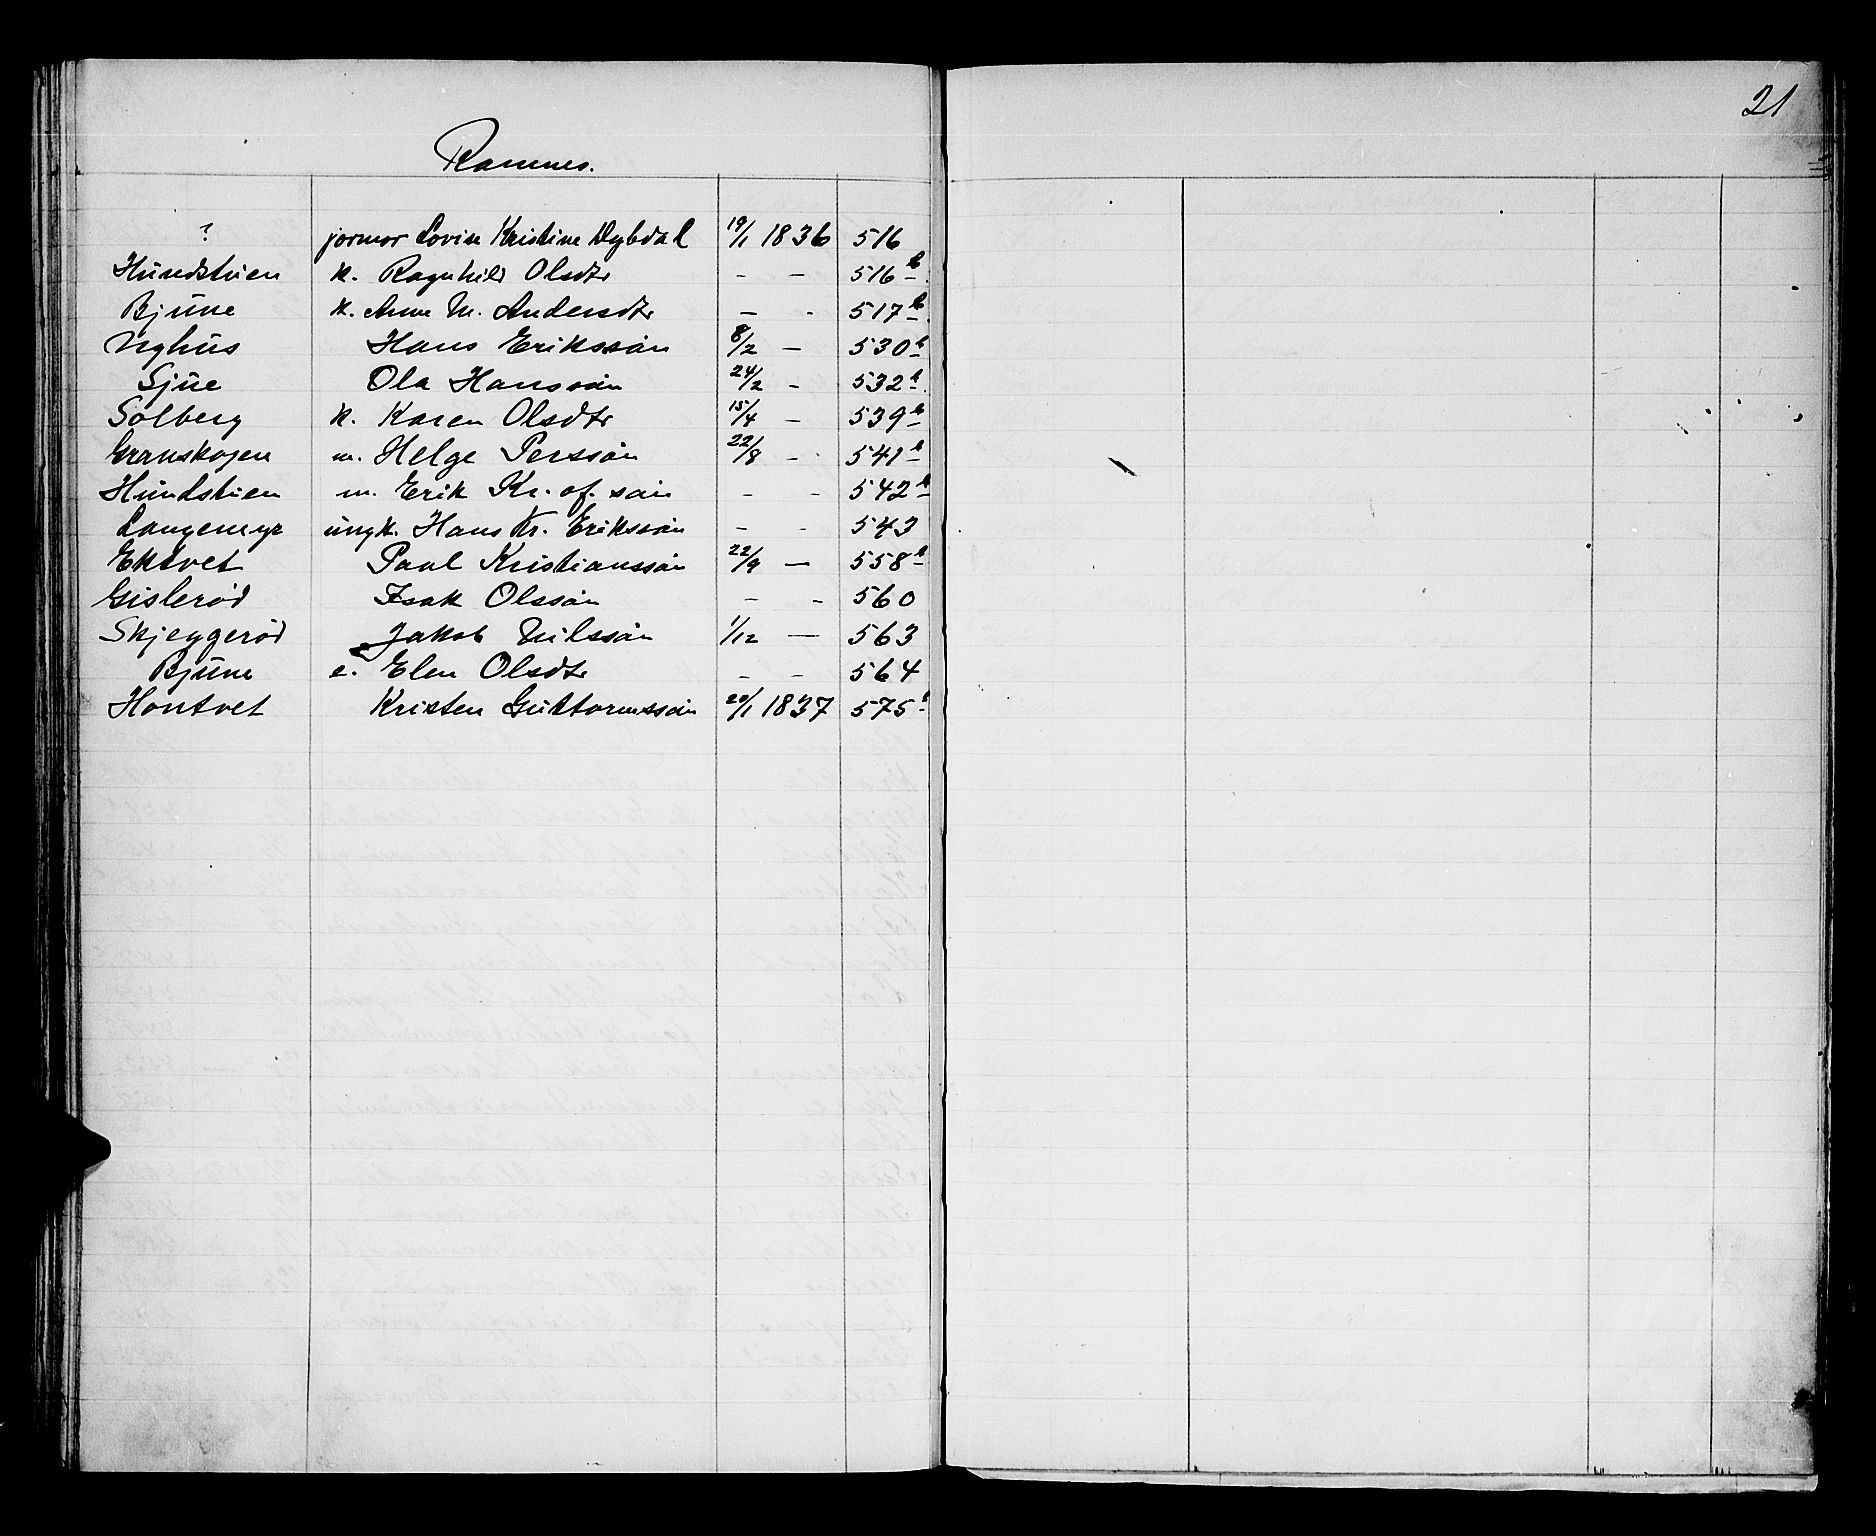 21
Ramnes.
? jormor Lovise Kristine Dybdal 19/1 1836 516
Hundstuen k. Ragnhild Olsdtr - - 516 b
Bjune k. Anne M. Andersdtr - - 517 b
Nyhus Hans Erikssøn 8/2 - 530 b
Sjue Ola Hanssøn 24/2 - 532 b
Solberg k. Karen Olsdtr 15/4 - 539 b
Granskogen m. Helge Perssøn 22/8 - 541 b
Hundstuen m. Erik Kr.of.søn - - 542 b
Langemyr ungk. Hans Kr. Erikssøn - - 543
Ektvet Paul Kristianssøn 22/9 - 558 b
Gislerød Isak Olssøn - - 560
Skjeggerød Jakob Nilssøn 1/12 - 563
Bjune e. Elen Olsdtr - - 564
Hontvet Kristen Guttormssøn 20/1 1837 575 b